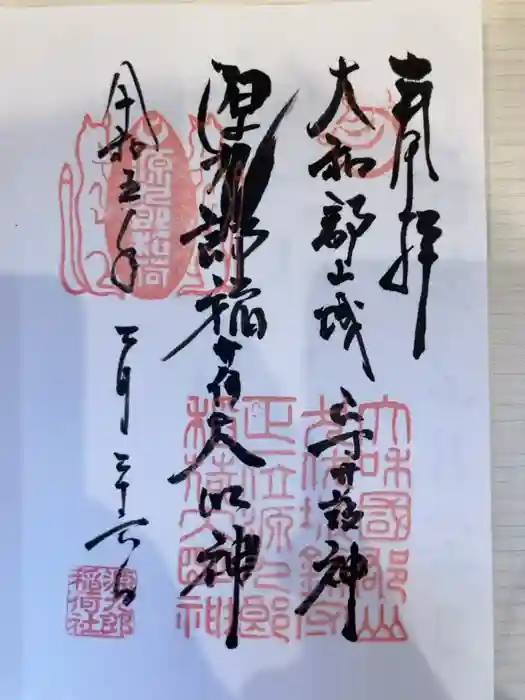 奉拝
大和郡山城 守護神
源九郎稲荷大明神
令和五年 三月二十六日
源九郎稲荷
大和國郡山
正一位源九郎
稲荷大明神
源九郎
稲荷社